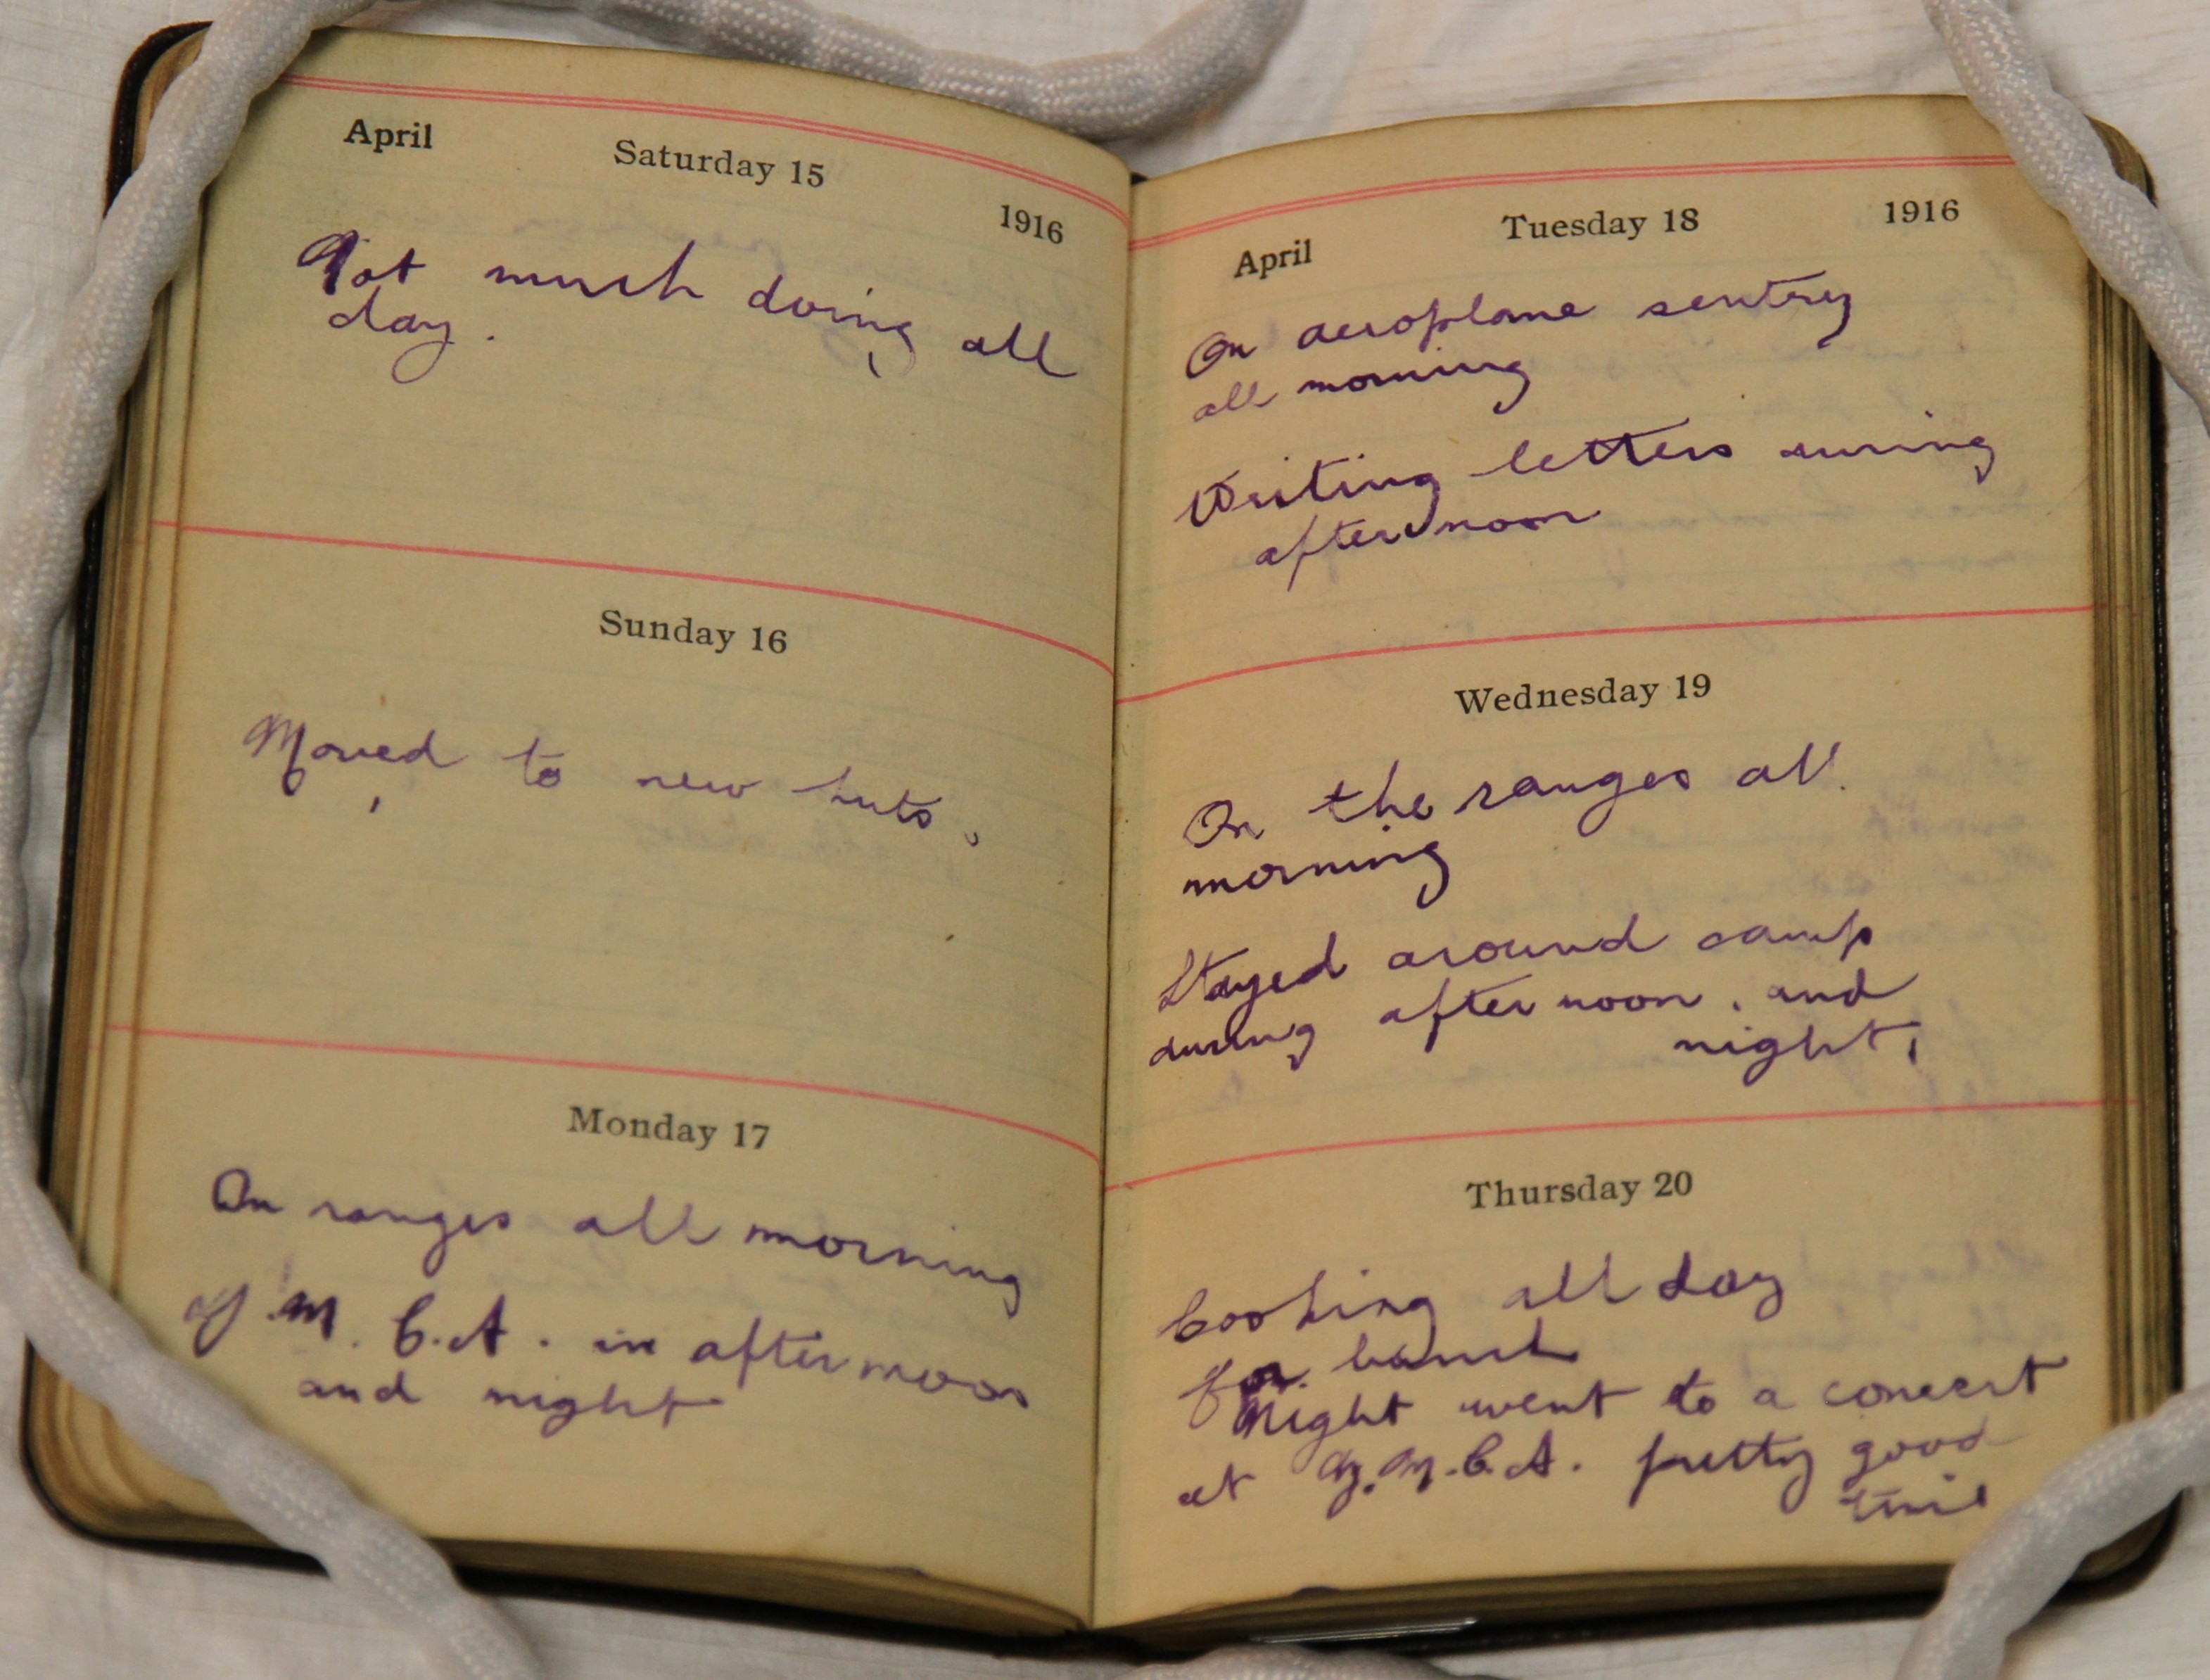 April Saturday 15 1916
Not much doing all
day.
Sunday 16
Moved to new huts.
Monday 17
On ranges all morning
Y.M.C.A. in afternoon
and night
April Tuesday 18 1916
On aeroplane sentry
all morning
Writing letters during
afternoon
Wednesday 19
On the ranges all
morning
Stayed around camp
during afternoon, and
night,
Thursday 20
Cooking all day
for
Night went to a concert
at Y.M.C.A. pretty good
time